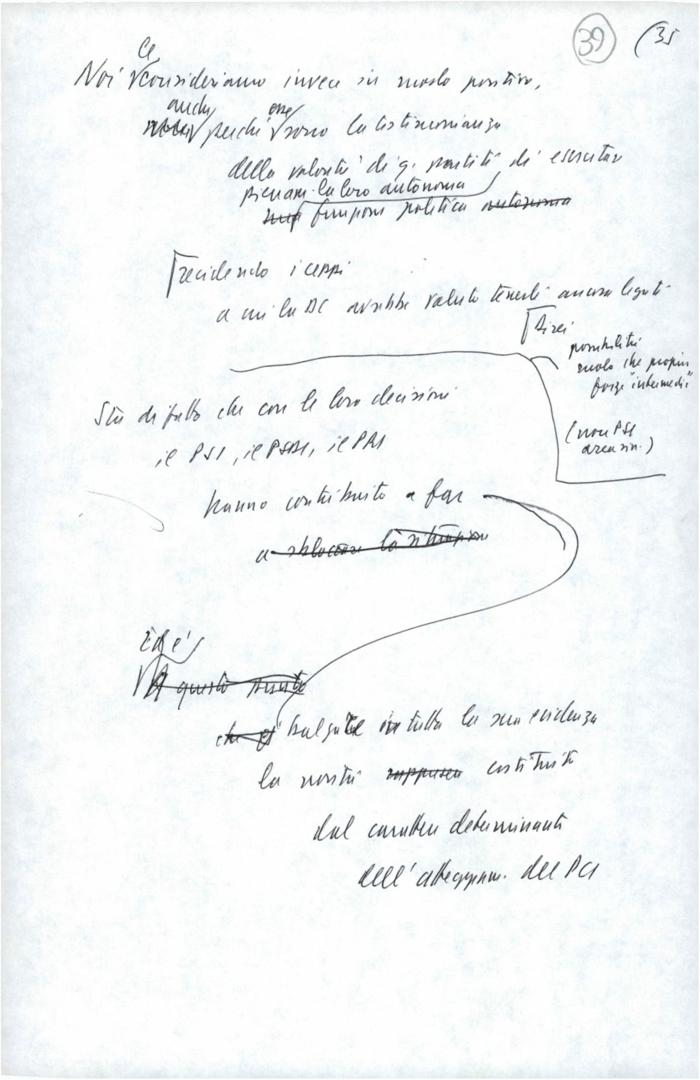 39 (35
Noi le consideriamo invece in modo positivo,
anche perché esse sono la testimonianza
della volontà di q. partiti di esercitare
pienam. la loro autonoma
funzione politica autonoma
recidendo i ceppi
a cui la DC avrebbe voluto tenerli ancora legati
Direi
possibilità
ruolo che proprio
forze "intermedie"
(non PSI
area sin.)
Sta di fatto che con le loro decisioni
il PSI, il PSDI, il PRI
hanno contribuito a far
a sbloccare la situazione
Ed è
A questo punto
che si balzare in tutta la sua evidenza
la novità rappresen costituita
dal carattere determinante
dell'atteggiam. del PCI